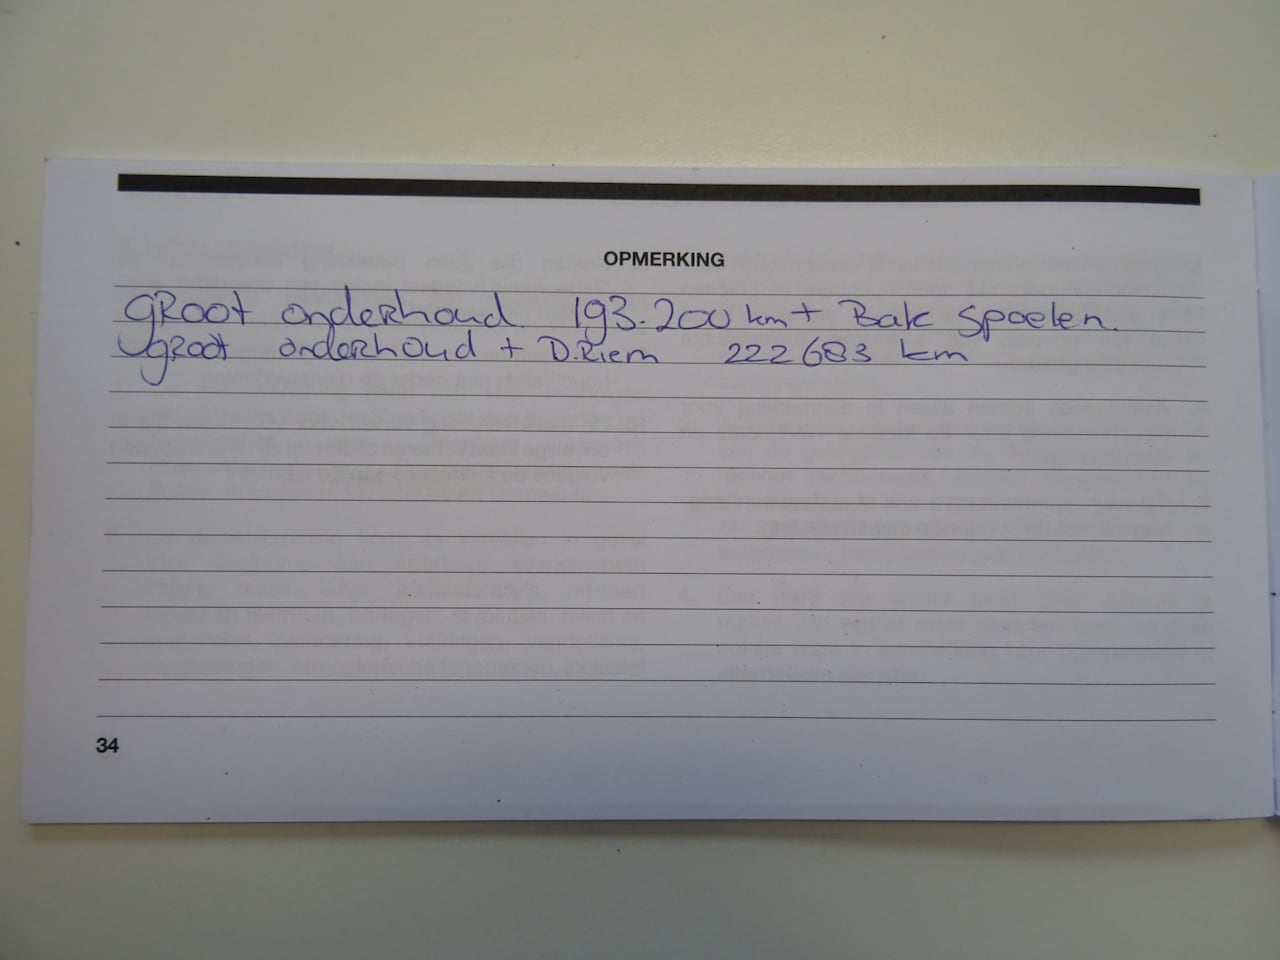 OPMERKING
GRoot onderhoud 193.200 km + Bak spoelen.
groot onderhoud + D.Riem 222683 km
34